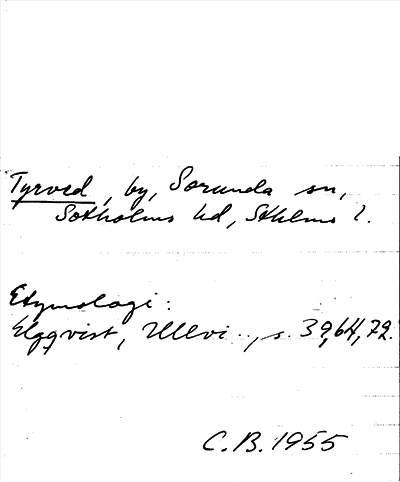 Tyrved, by, Sorunda sn,
Sotholms hd, Sthlms l.
Etymologi:
Elgqvist, Ullvi.., s. 39, 64, 72.
C.B. 1955